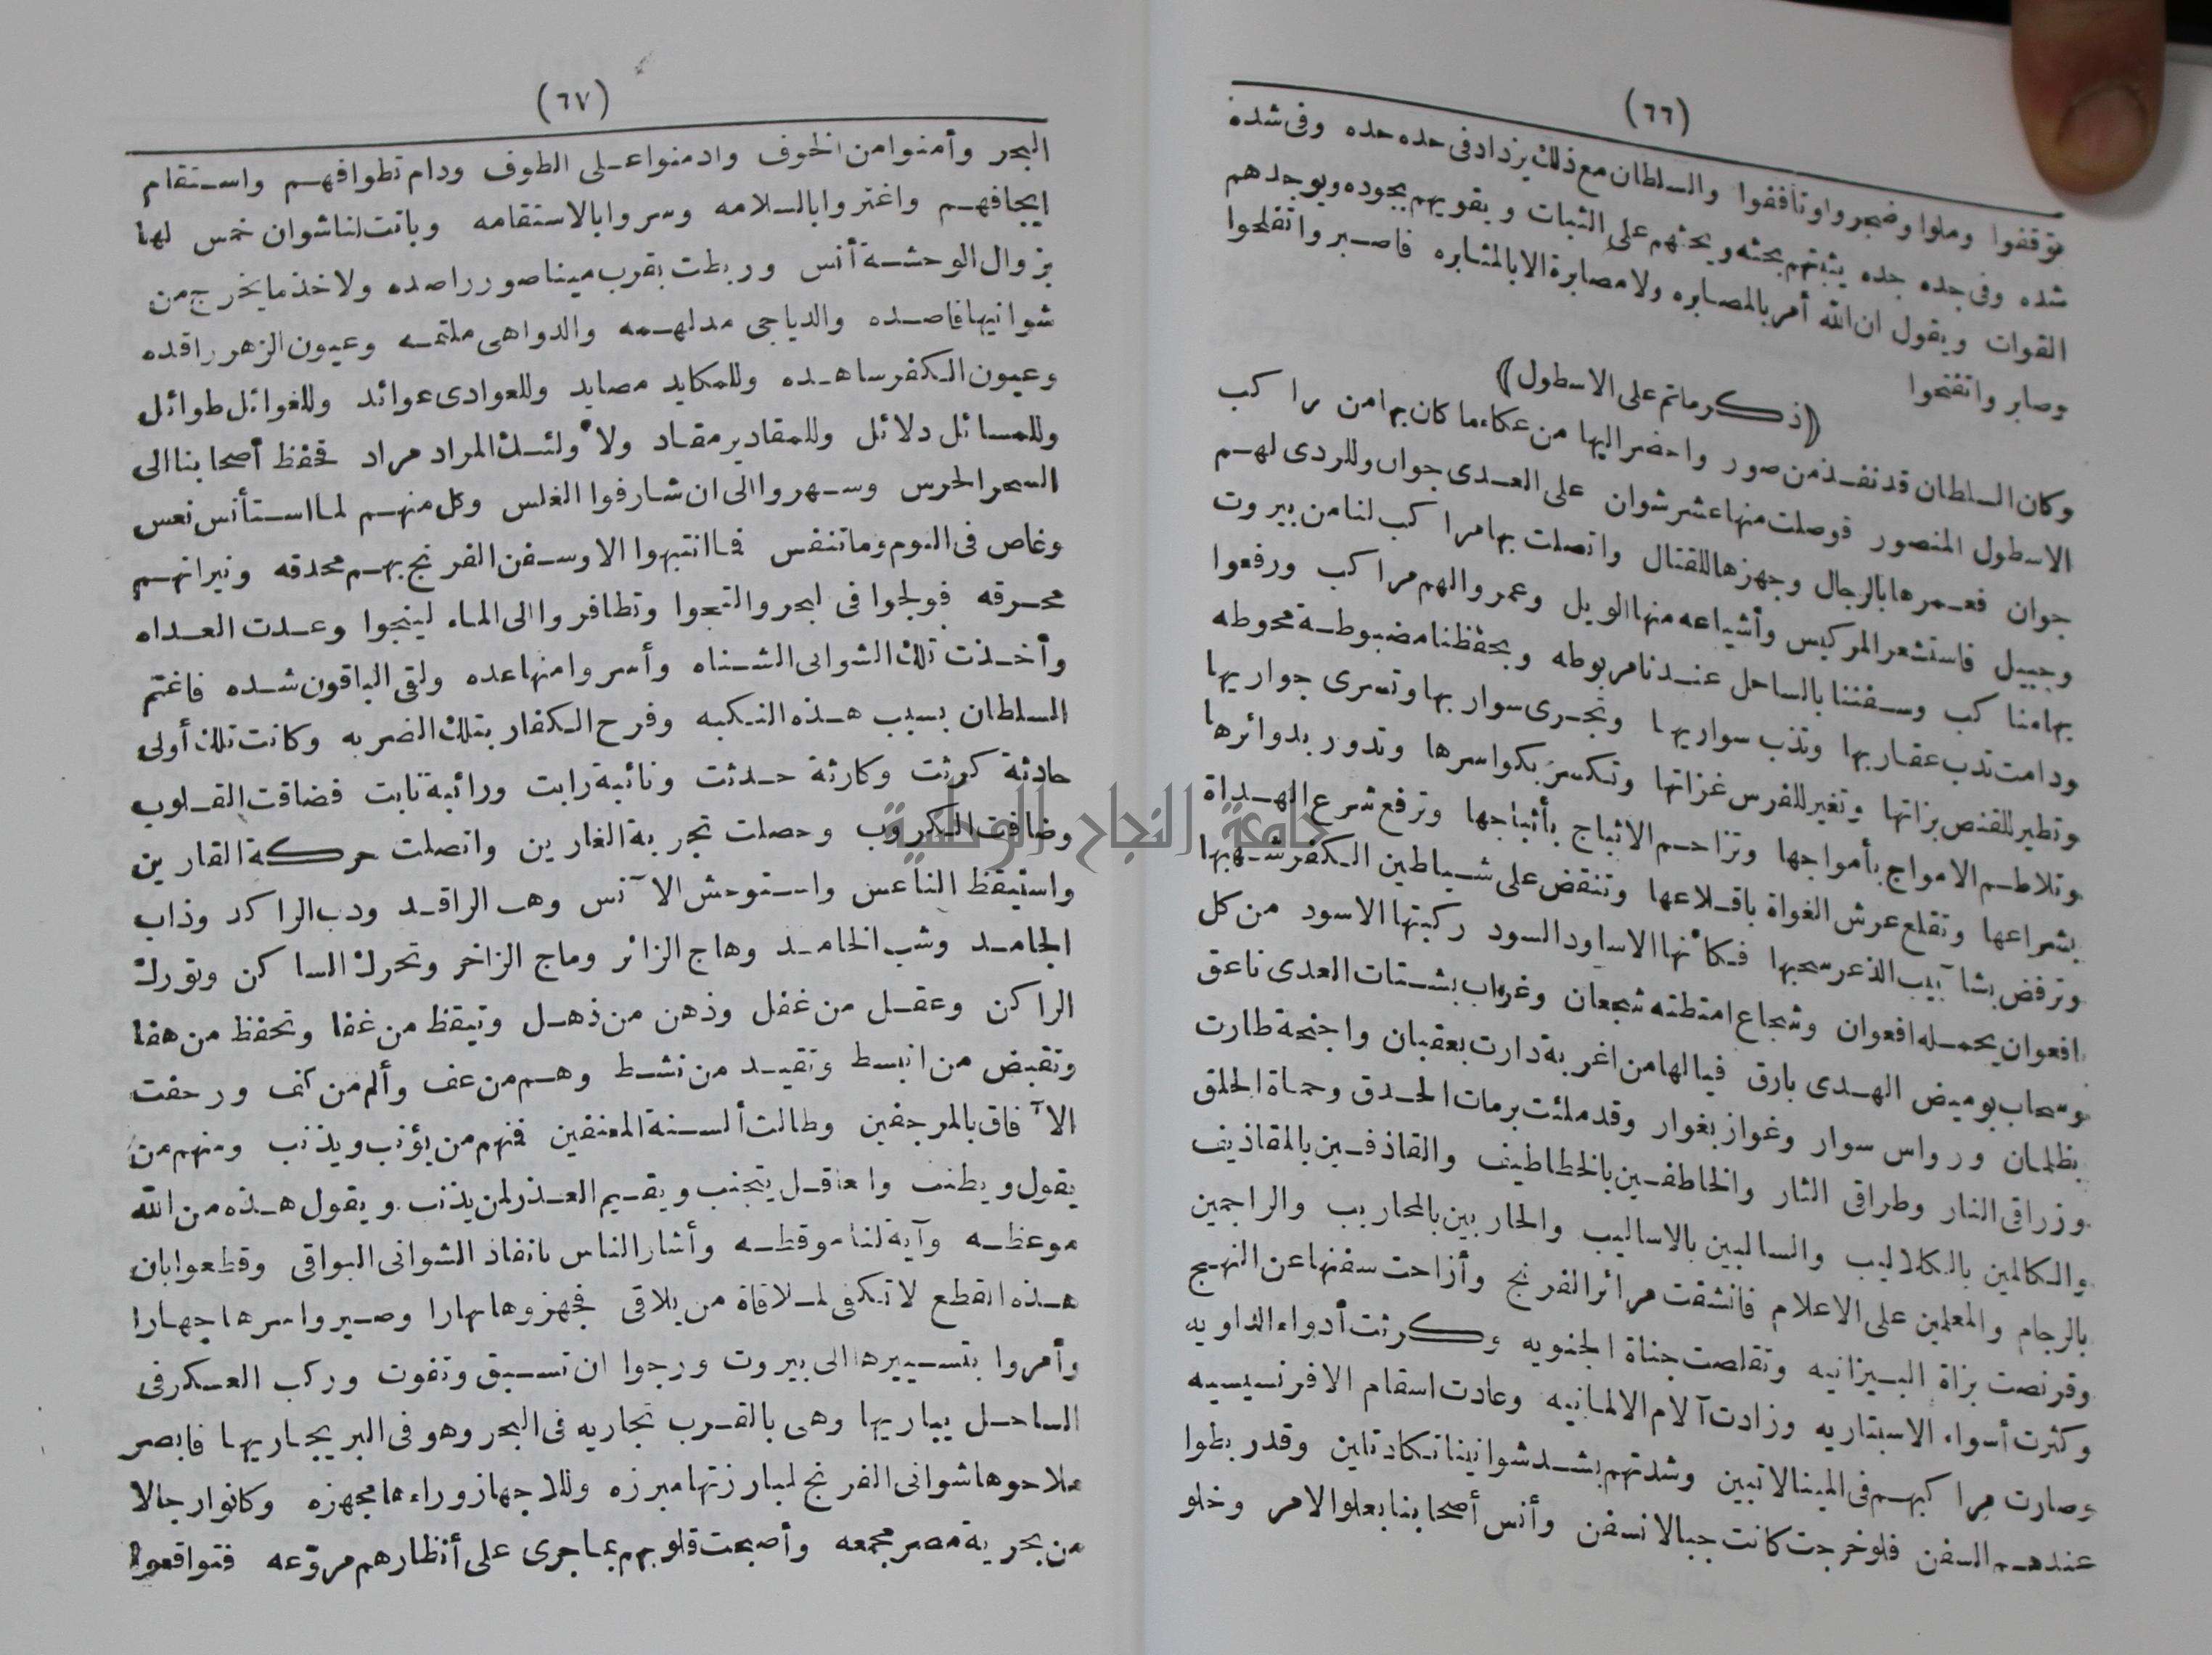 (٦٦)
توقفوا وملوا وضجروا وتأففوا والسلطان مع ذلك يزداد فى حده حده وفى شدة
شده وفى جده جده يثبتهم بحثه ويحثهم على الثبات ويقويهم بجوده ويوجدهم
القوات ويقول ان الله أمر بالمصابره ولا مصابرة الا بالمثابره فاصبروا تفلحوا
وصابروا تفتحوا
(ذكر ما تم على الاسطول)
وكان السلطان قد نفذ من صور واحضر اليها من عكاء ما كان بها من مراكب
الاسطول المنصور فوصلت منها عشر شوان على العدى جوان وللردى لهم
جوان فعمرها بالرجال وجهزها للقتال واتصلت بها مراكب لنا من بيروت
وجبيل فاستشعر المركيس وأشياعه منها الويل وعمروا لهم مراكب ورفعوا
بها مناكب وسفننا بالساحل عندنا مربوطه وبحفظنا مضبوطة محوطه
ودامت تدب عقاربها وتذب سواريها وتجرى سواربها وتسرى جواريها
وتطير للقنص بزاتها وتغير للفرس غزاتها وتكسر بكواسرها وتدور بدوائرها
وتلاطم الامواج بأمواجها وتزاحم الاثباج بأثباجها وترفع شرع الهداة
بشراعها وتقلع عرش الغواة باقلاعها وتنقض على شياطين الكفر شهبها
وترفض بشآبيب الذعر سحبها فكأنها الاساود السود ركبتها الاسود من كل
افعوان يحمله افعوان وشجاع امتطته شجعان وغراب بشتات العدى ناعق
وسحاب بوميض الهدى بارق فيالها من اغربة دارت بعقبان واجنحة طارت
بظلمان ورواس سوار وغواز بغوار وقد ملئت برمات الحدق وحماة الحلق
وزراقى النار وطراقى الثار والخاطفين بالخطاطيف والقاذفين بالمقاذيف
والكالمين بالكلاليب والسالبين بالاساليب والحاربين بالمحاريب والراجمين
بالرجام والمعلمين على الاعلام فانشقت مرائر الفرنج وأزاحت سفنها عن النهج
وقرنصت بزاة البيزانيه وتقلصت جناة الجنويه وكرثت أدواء الداويه
وكثرت أسواء الاسبتاريه وزادت آلام الالمانيه وعادت اسقام الافرنسيسيه
وصارت مراكبهم فى المينا لا تبين وشدتهم بشد شوانينا تكاد تلين وقد ربطوا
عندهم السفن فلو خرجت كانت جبالا نسفن وأنس أصحابنا بعلو الامر وخلو
(٦٧)
البحر وأمنوا من الخوف وادمنوا على الطوف ودام تطوافهم واستقام
ايجافهم واغتروا بالسلامه وسروا بالاستقامه وباتت لنا شوان خمس لها
بزوال الوحشة أنس وربطت بقرب مينا صور راصده ولاخذ ما يخرج من
شوانيها قاصده والدياجى مدلهمه والدواهى ملتمه وعيون الزهر راقده
وعيون الكفر ساهده وللمكايد مصايد وللعوادى عوائد وللغوائل طوائل
وللمسائل دلائل وللمقادير مقاد ولأولئك المراد مراد فحفظ أصحابنا الى
السحر الحرس وسهروا الى ان شارفوا الغلس وكل منهم لما استأنس نعس
وغاص فى النوم وما تنفس فما انتبهوا الا وسفن الفرنج بهم محدقه ونيرانهم
محرقه فولجوا فى البحر والتجوا وتطافروا الى الماء لينجوا وعدت العداه
وأخذت تلك الشوانى الشناه وأسروا منها عده ولقى الباقون شده فاغتم
السلطان بسبب هذه النكبه وفرح الكفار بتلك الضربه وكانت تلك أولى
حادثة كرثت وكارثة حدثت ونائبة رابت ورائبة نابت فضاقت القلوب
وضافت الكروب وحصلت تجربة الغارين واتصلت حركة القارين
واستيقظ الناعس واستوحش الآنس وهب الراقد ودب الراكد وذاب
الجامد وشب الخامد وهاج الزائر وماج الزاخر وتحرك الساكن وتورك
الراكن وعقل من غفل وذهن من ذهل وتيقظ من غفا وتحفظ من هفا
وتقبض من انبسط وتقيد من نشط وهم من عف وألم من كف ورجفت
الآفاق بالمرجفين وطالت ألسنة المعنفين فمنهم من يؤنب ويذنب ومنهم من
يقول ويطنب والعاقل يتجنب ويقيم العذر لمن يذنب ويقول هذه من الله
موعظه وآية لنا موقظه وأشار الناس بانفاذ الشوانى البواقى وقطعوا بان
هذه القطع لا تكفى لملاقاة من يلاقى فجهزوها نهارا وصيروا سرها جهارا
وأمروا بتسييرها الى بيروت ورجوا ان تسبق وتفوت وركب العسكر فى
الساحل يباريها وهى بالقرب تجاريه فى البحر وهو فى البر يجاريها فابصر
ملاحوها شوانى الفرنج لمبارزتها مبرزه وللاجهاز وراءها مجهزه وكانوا رجالا
من بحرية مصر مجمعه وأصبحت قلوبهم بما جرى على أنظارهم مروّعه فتواقعوا
جامعة النجاح الوطنية